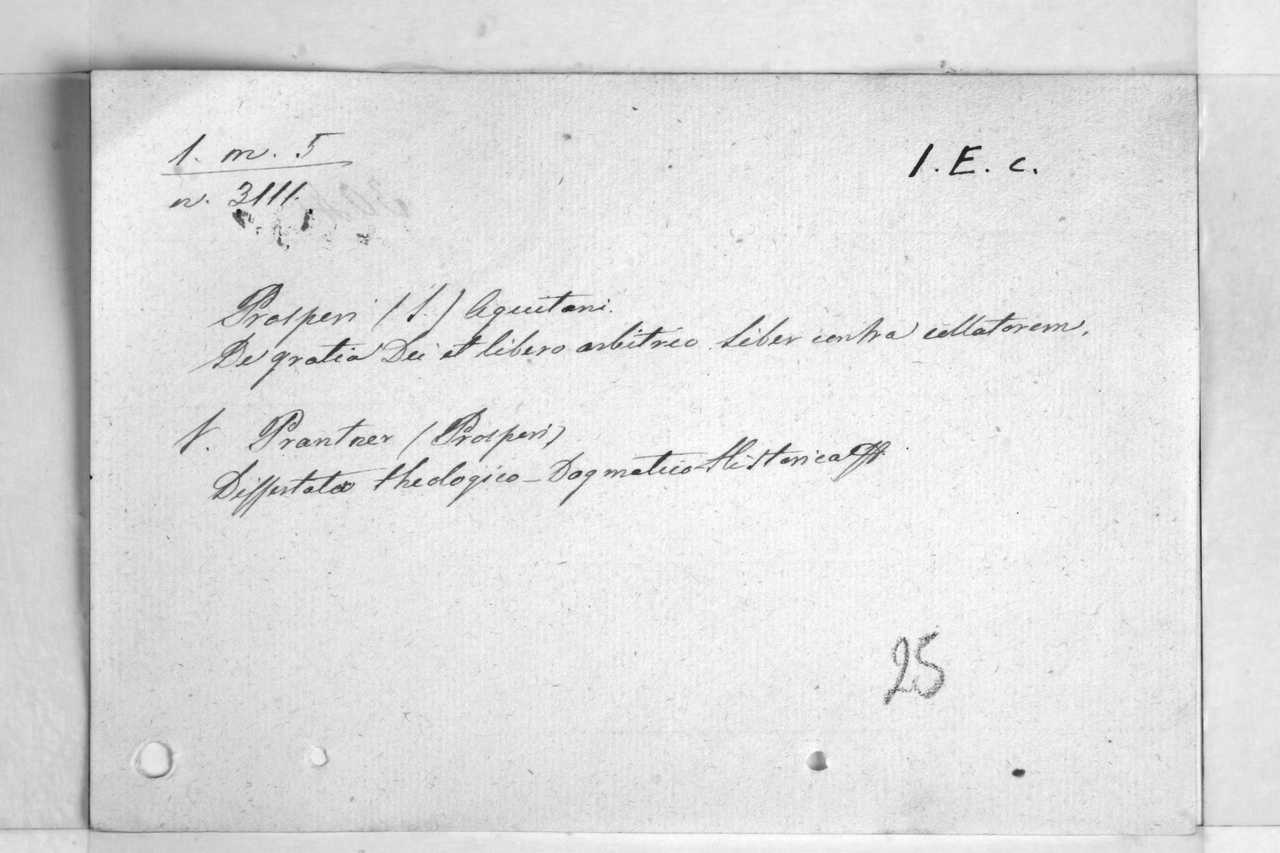 1. m. 5
n. 3111.
1. E. c.
Prosperi (S.) Aquitani.
De gratia Dei et libero arbitrio Liber contra collatorem.
V. Prantner (Prosperi)
Theologico-Dogmatico-Historica
25